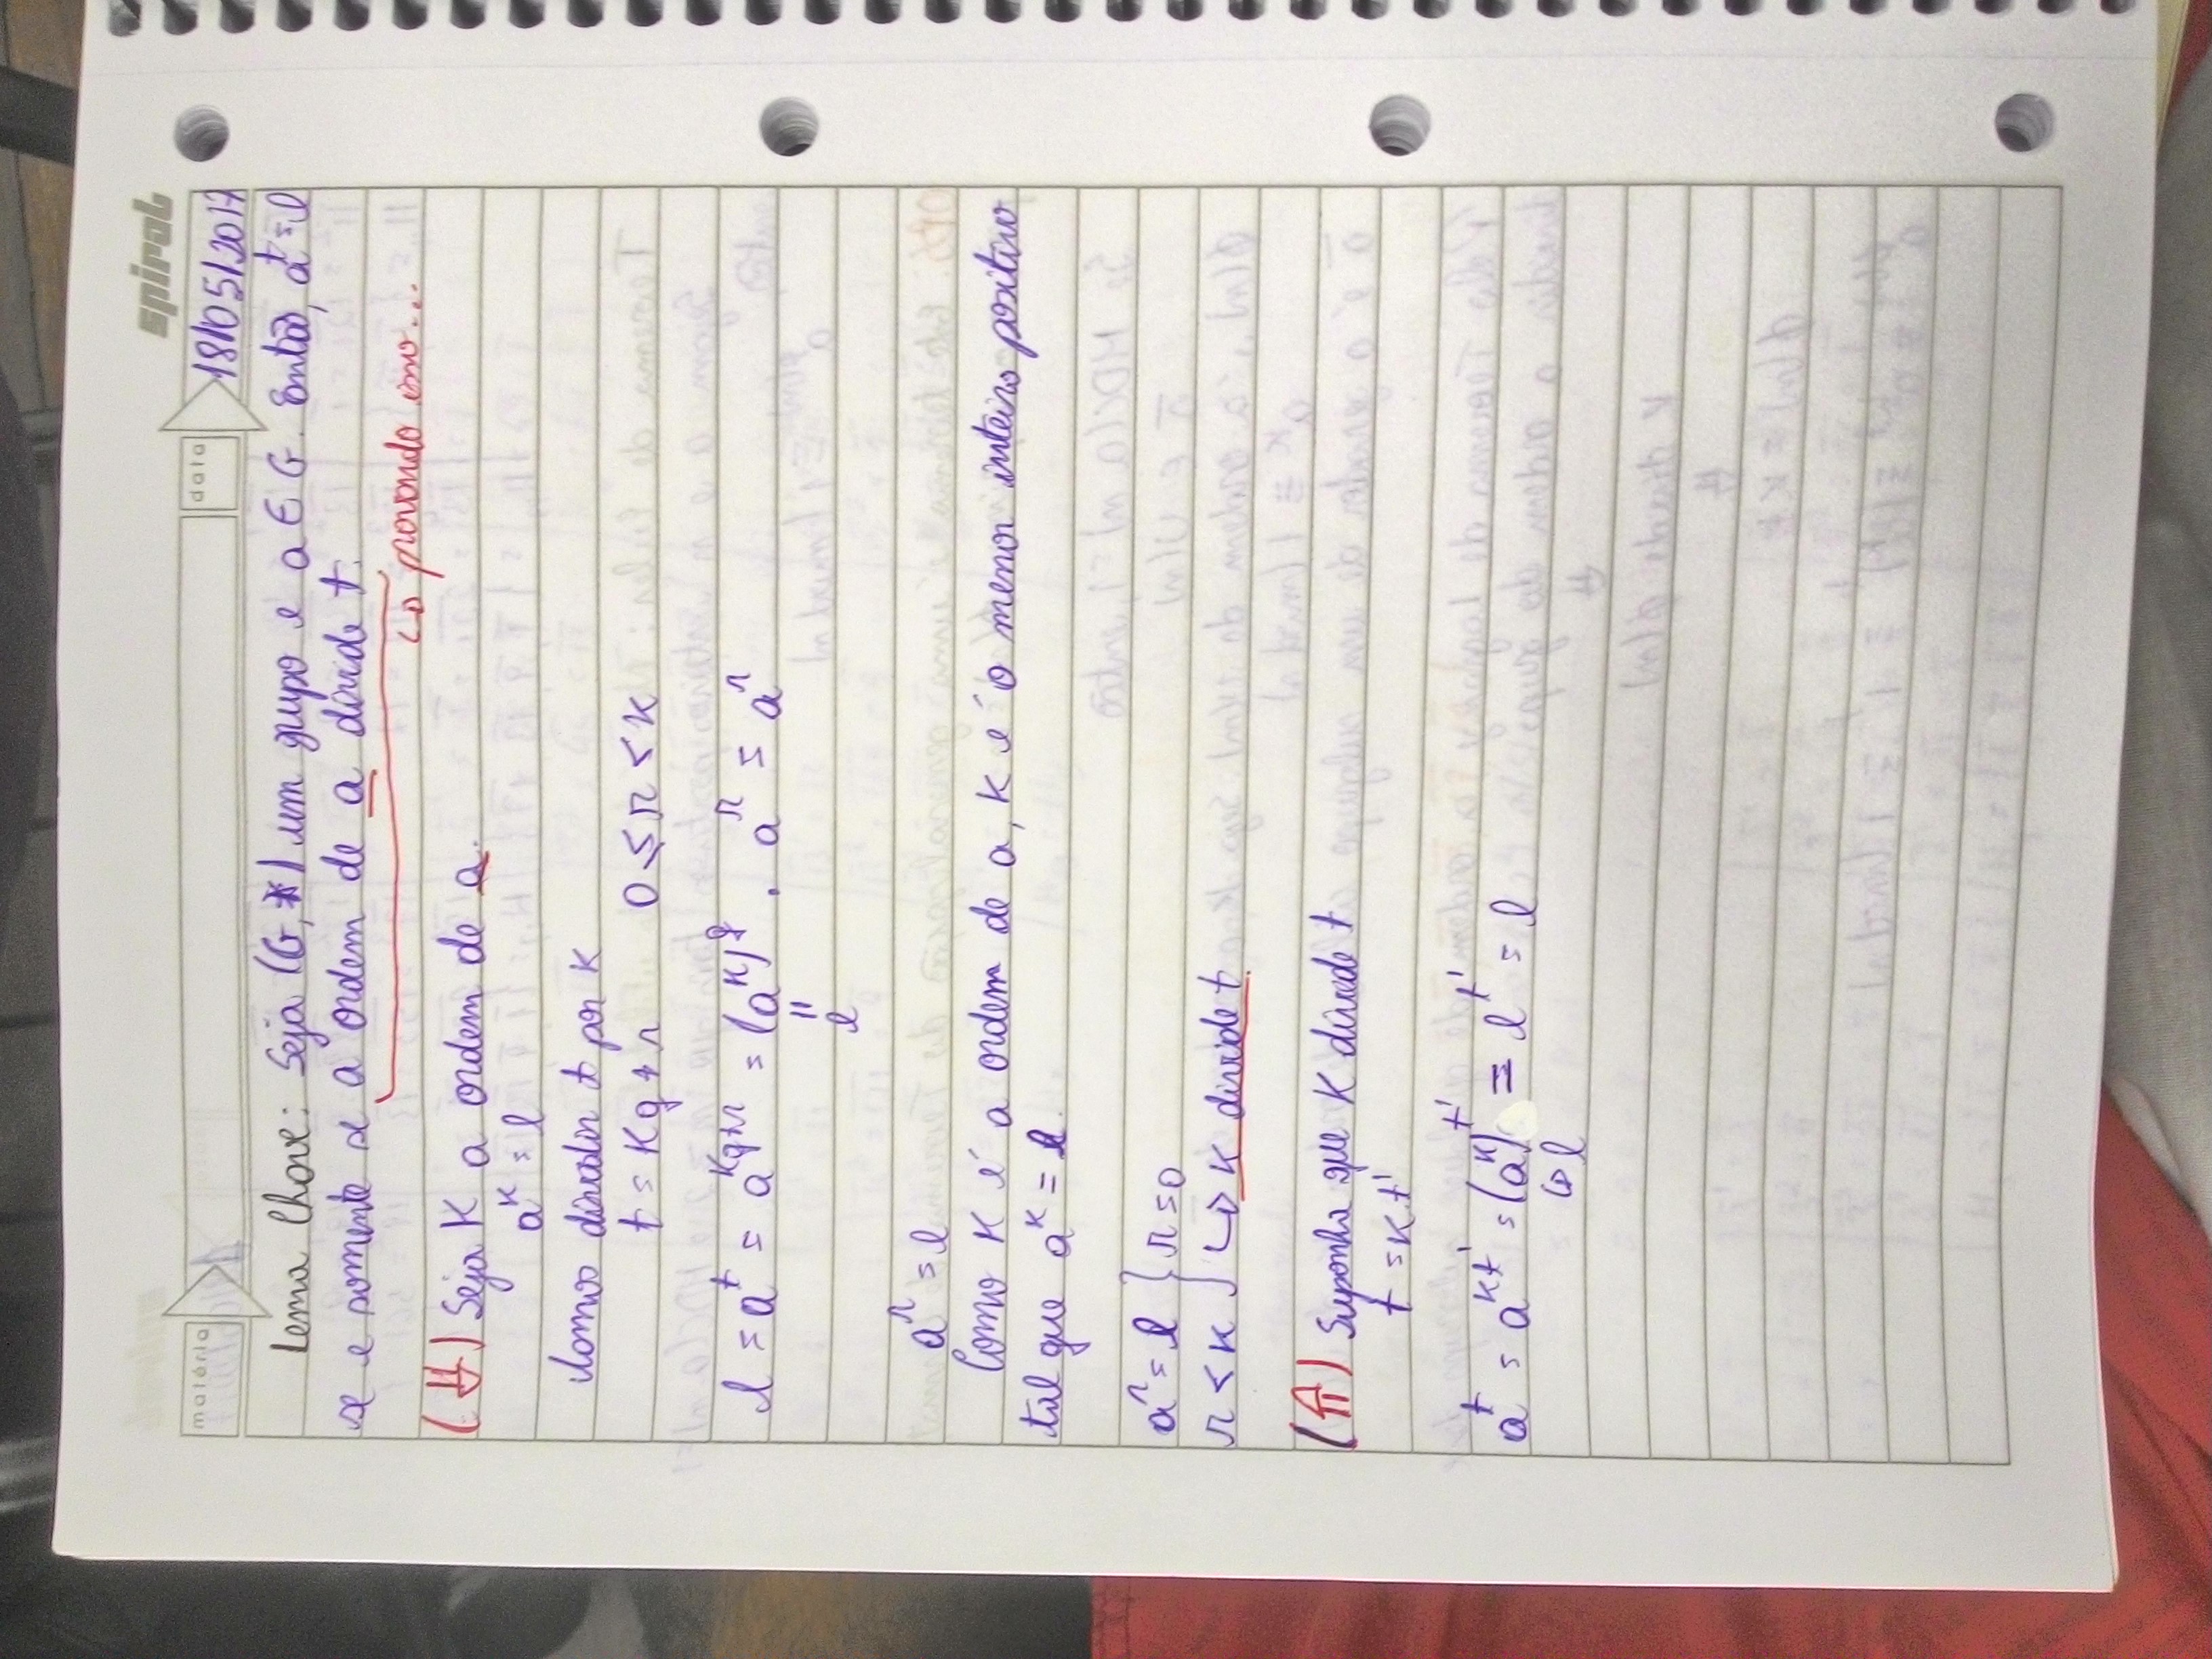 spiral
matéria data 18/05/2017
Lema Chave: Seja (G, *) um grupo e a ∈ G. Então, a^t = e
se e somente se a ordem de a divide t.
↳ provando isso...
(⇓) Seja K a ordem de a.
a^K = e
Vamos dividir t por K
t = Kq + r 0 ≤ r < K
e = a^t = a^{Kq+r} = (a^K)^q . a^r = a^r
||
e
a^r = e
Como K é a ordem de a, K é o menor inteiro positivo
tal que a^K = e.
a^r = e } r = 0
r < K } ↳ K divide t
(⇑) Suponha que K divide t
t = K.t'
a^t = a^{Kt'} = (a^K)^{t'} = e^{t'} = e
↳ e